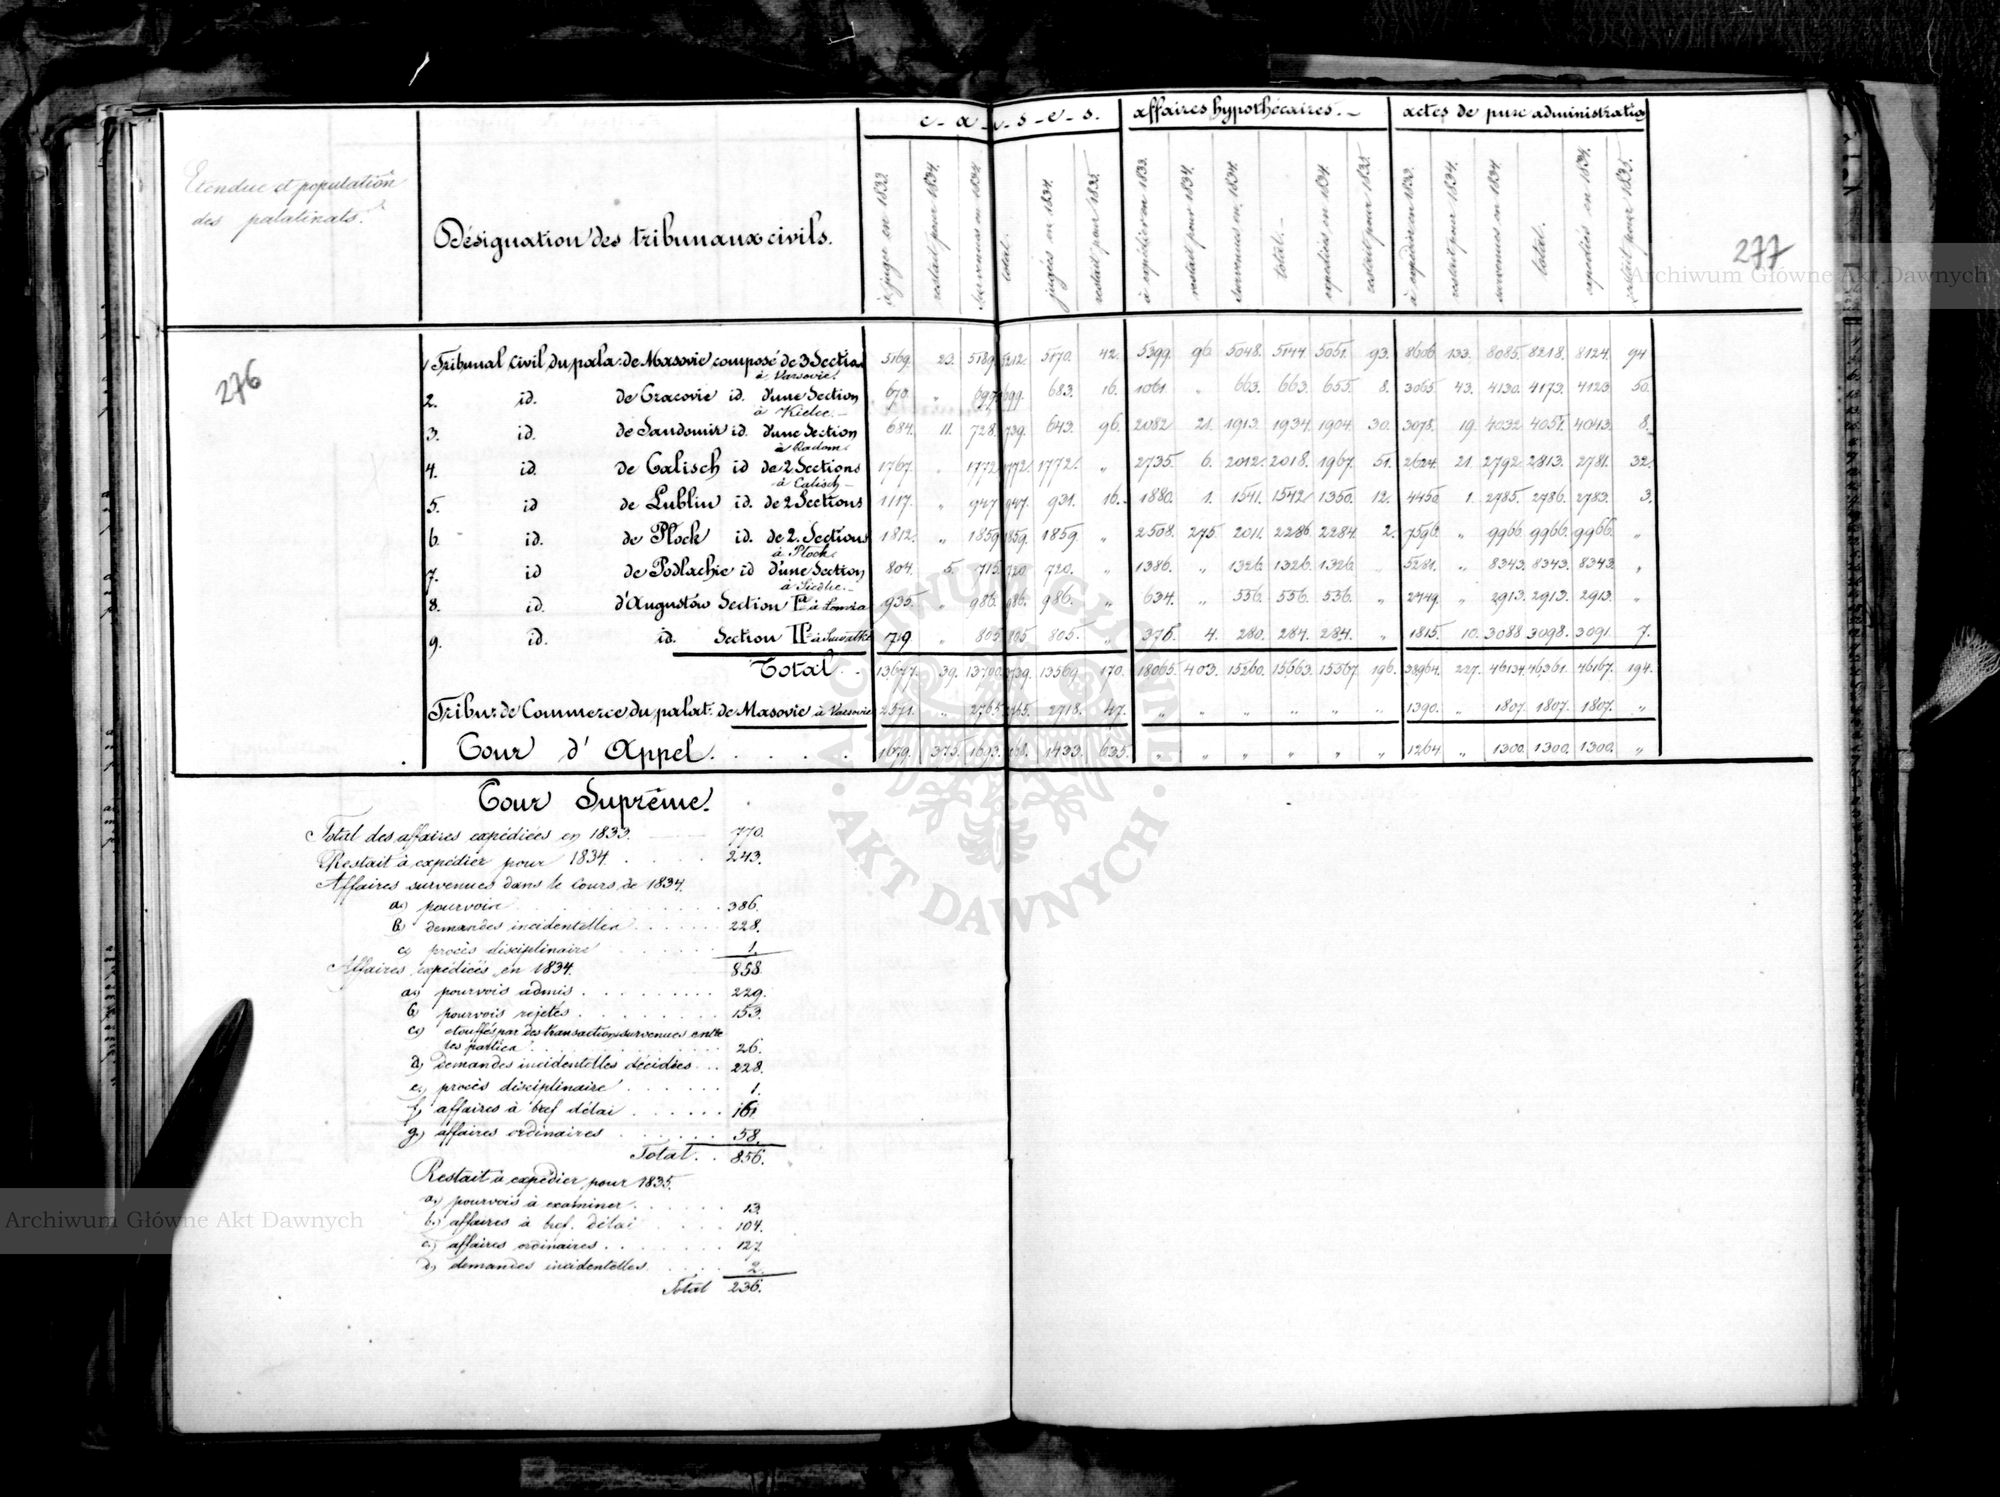 Etendue et population
des palatinats.
Désignation des tribunaux civils.
c-a-u-s-e-s.
affaires hypothécaires.-
actes de pure administratio
à juger en 1833.
restait pour 1834.
survenues en 1834.
total.
jugés en 1834.
restait pour 1835.
à expédier en 1833.
restait pour 1834.
survenues en 1834.
total.-
expédiés en 1834.
restait pour 1835.
à expédier en 1833.
restait pour 1834.
survenues en 1834
total.
expédiés en 1834.
restait pour 1835.
277
276
1 Tribunal Civil du pala: de Masovie composé de 3 Section 5169. 23. 5189. 5212. 5170. 42. 5399. 96. 5048. 5144. 5051. 93. 8606. 133. 8085. 8218. 8124. 94
à Varsovie.
2. id. de Cracovie id. d'une Section 670. " 699. 699. 683. 16. 1061. " 663. 663. 655. 8. 3065. 43. 4130. 4173. 4123. 50.
à Kielce.-
3. id. de Sandomir id. d'une Section 684. 11. 728. 739. 643. 96. 2082. 21. 1913. 1934. 1904. 30. 3078. 19. 4032. 4051. 4043. 8.
à Radom.
4. id. de Calisch id de 2 Sections 1767. " 1772. 1772. 1772. " 2735. 6. 2012. 2018. 1967. 51. 2624. 21. 2792. 2813. 2781. 32.
à Calisch-
5. id de Lublin id. de 2 Sections 1117. " 947. 947. 931. 16. 1880. 1. 1541. 1542. 1350. 12. 4450. 1. 2785. 2786. 2783. 3.
6. id. de Plock id. de 2. Sections 1812. " 1859. 1859. 1859. " 2508. 275. 2011. 2286. 2284. 2. 7596. " 9966. 9966. 9966. "
à Plock.
7. id de Podlachie id d'une Section 804. 5. 715. 720. 720. " 1386. " 1326. 1326. 1326. " 5281. " 8343. 8343. 8343. "
à Siedlce.-
8. id. d'Augustów Section Ire à Lomza 935. " 986. 986. 986. " 634. " 536. 536. 536. " 2449. " 2913. 2913. 2913. "
9. id. id. Section II à Suwalki 719. " 805. 805. 805. " 376. 4. 280. 284. 284. " 1815. 10. 3088. 3098. 3091. 7.
Total. 13677. 39. 13700. 13739. 13569. 170. 18065. 403. 15260. 15663. 15367. 196. 38964. 227. 46134. 46361. 46167. 194.
Tribun: de Commerce du palat: de Masovie à Varsovie 2371. " 2765. 2765. 2718. 47. " " " " " " 1390. " 1807. 1807. 1807. "
Cour d'Appel. 1679. 375. 1693. 1433. 635. " " " " " " 1264. " 1300. 1300. 1300. "
Cour Suprême.
Total des affaires expédiées en 1833. 770.
Restait à expédier pour 1834. 243.
Affaires survenues dans le cours de 1834.
a.) pourvois 386.
b.) demandes incidentelles 228.
c.) procès disciplinaire 1.
Affaires expédiées en 1834. 858.
a.) pourvois admis 229.
b.) pourvois rejetés 153.
c.) étouffés par des transactions survenues entre
les parties 26.
d.) demandes incidentelles décidées 228.
e.) procès disciplinaire 1.
f.) affaires à bref délai 161.
g.) affaires ordinaires 58.
Total. 856.
Restait à expédier pour 1835.
a.) pourvois à examiner 13.
b.) affaires à bref. délai 104.
c.) affaires ordinaires 127.
d.) demandes incidentelles 2.
Total 236.
Archiwum Główne Akt Dawnych
Archiwum Główne Akt Dawnych
ARCHIWUM GŁÓWNE · AKT DAWNYCH ·